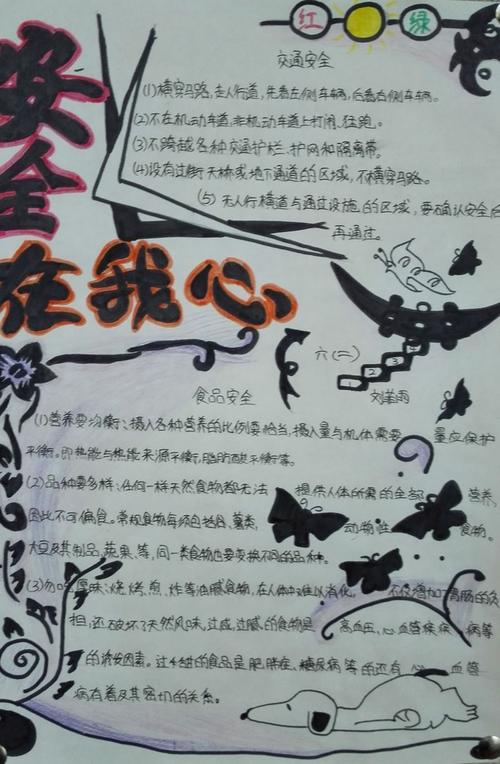 红 绿
安全
在我心
交通安全
(1)横穿马路,走人行道,先看左侧车辆,后看右侧车辆。
(2)不在机动车道,非机动车道上打闹、狂跑。
(3)不跨越各种交通护栏、护网和隔离带。
(4)没有过街天桥或地下通道的区域,不横穿马路。
(5)无人行横道与通过设施的区域,要确认安全后
再通过。
六(二)
刘 雨
食品安全
(1)营养要均衡:摄入各种营养的比例要恰当,摄入量与机体需要 量应保护
平衡。即热能与热能来源平衡,脂肪酸平衡等。
(2)品种要多样:任何一样天然食物都无法 提供人体所需的全部 营养,
因此不可偏食。常规食物每须包括谷、薯类, 动物性 食物。
大豆及其制品,蔬果、等,同一类食物也要变换不同的品种。
(3)勿 味:烧、烤、煎、炸等油腻食物,在人体中难以消化。 不仅增加了胃肠的负
担,还破坏了天然风味,过咸,过腻的食物是 高血压、心血管疾 病等
的诱发因素。过 甜的食品是肥胖症、糖尿病等的还有 心 血管
病有着及其密切的关系。